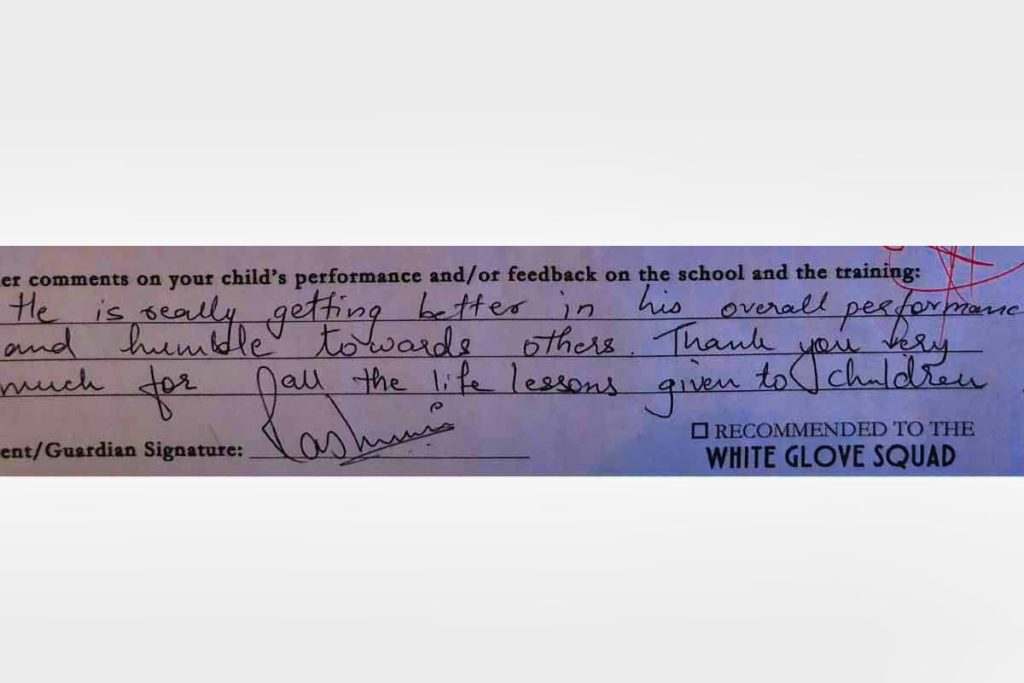 er comments on your child's performance and/or feedback on the school and the training:
He is really getting better in his overall performanc
and humble towards others. Thank you very
much for all the life lessons given to children
ent/Guardian Signature:
☐ RECOMMENDED TO THE
WHITE GLOVE SQUAD